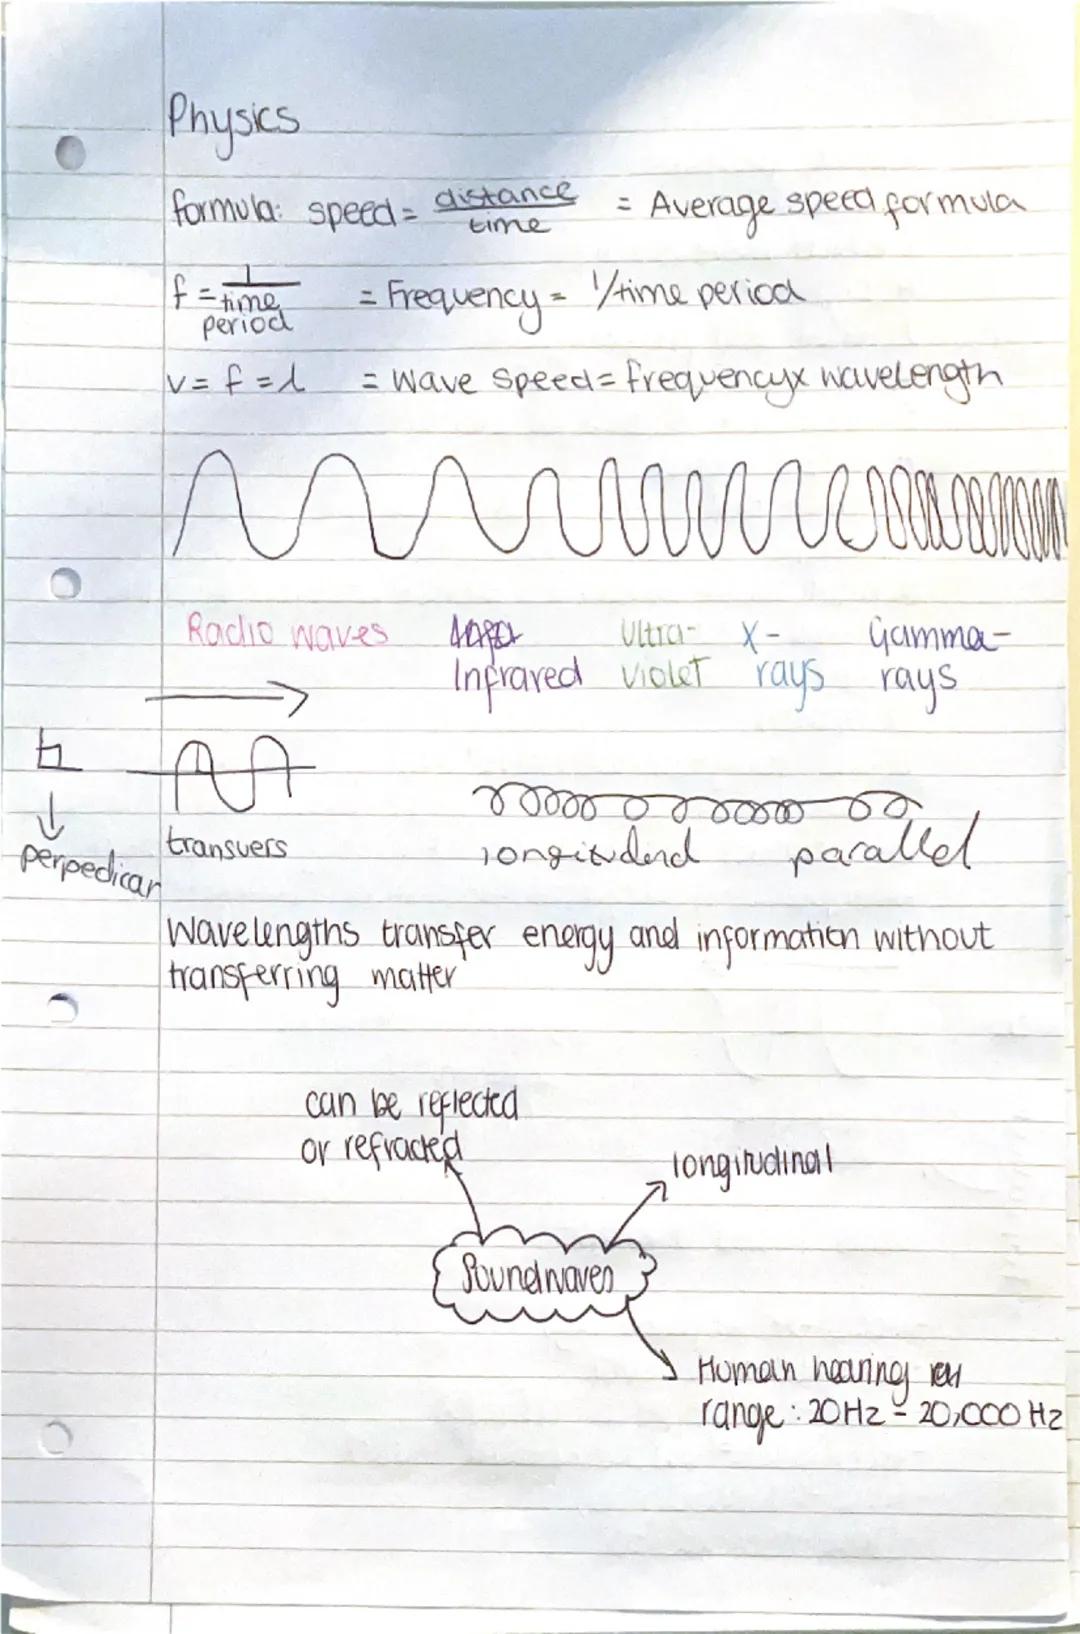 Physics
formula: speed = distance/time = Average speed formula
f = 1/time period = Frequency = 1/time period
v = f = λ = Wave Speed = frequency x wavelength
Radio waves Infrared Ultra-violet X-rays Gamma-rays
transvers longitudend parallel
perpedicar
Wavelengths transfer energy and information without
transferring matter
can be reflected
or refracted
longitudinal
Soundwaves
Human hearing
range : 20Hz - 20,000 Hz